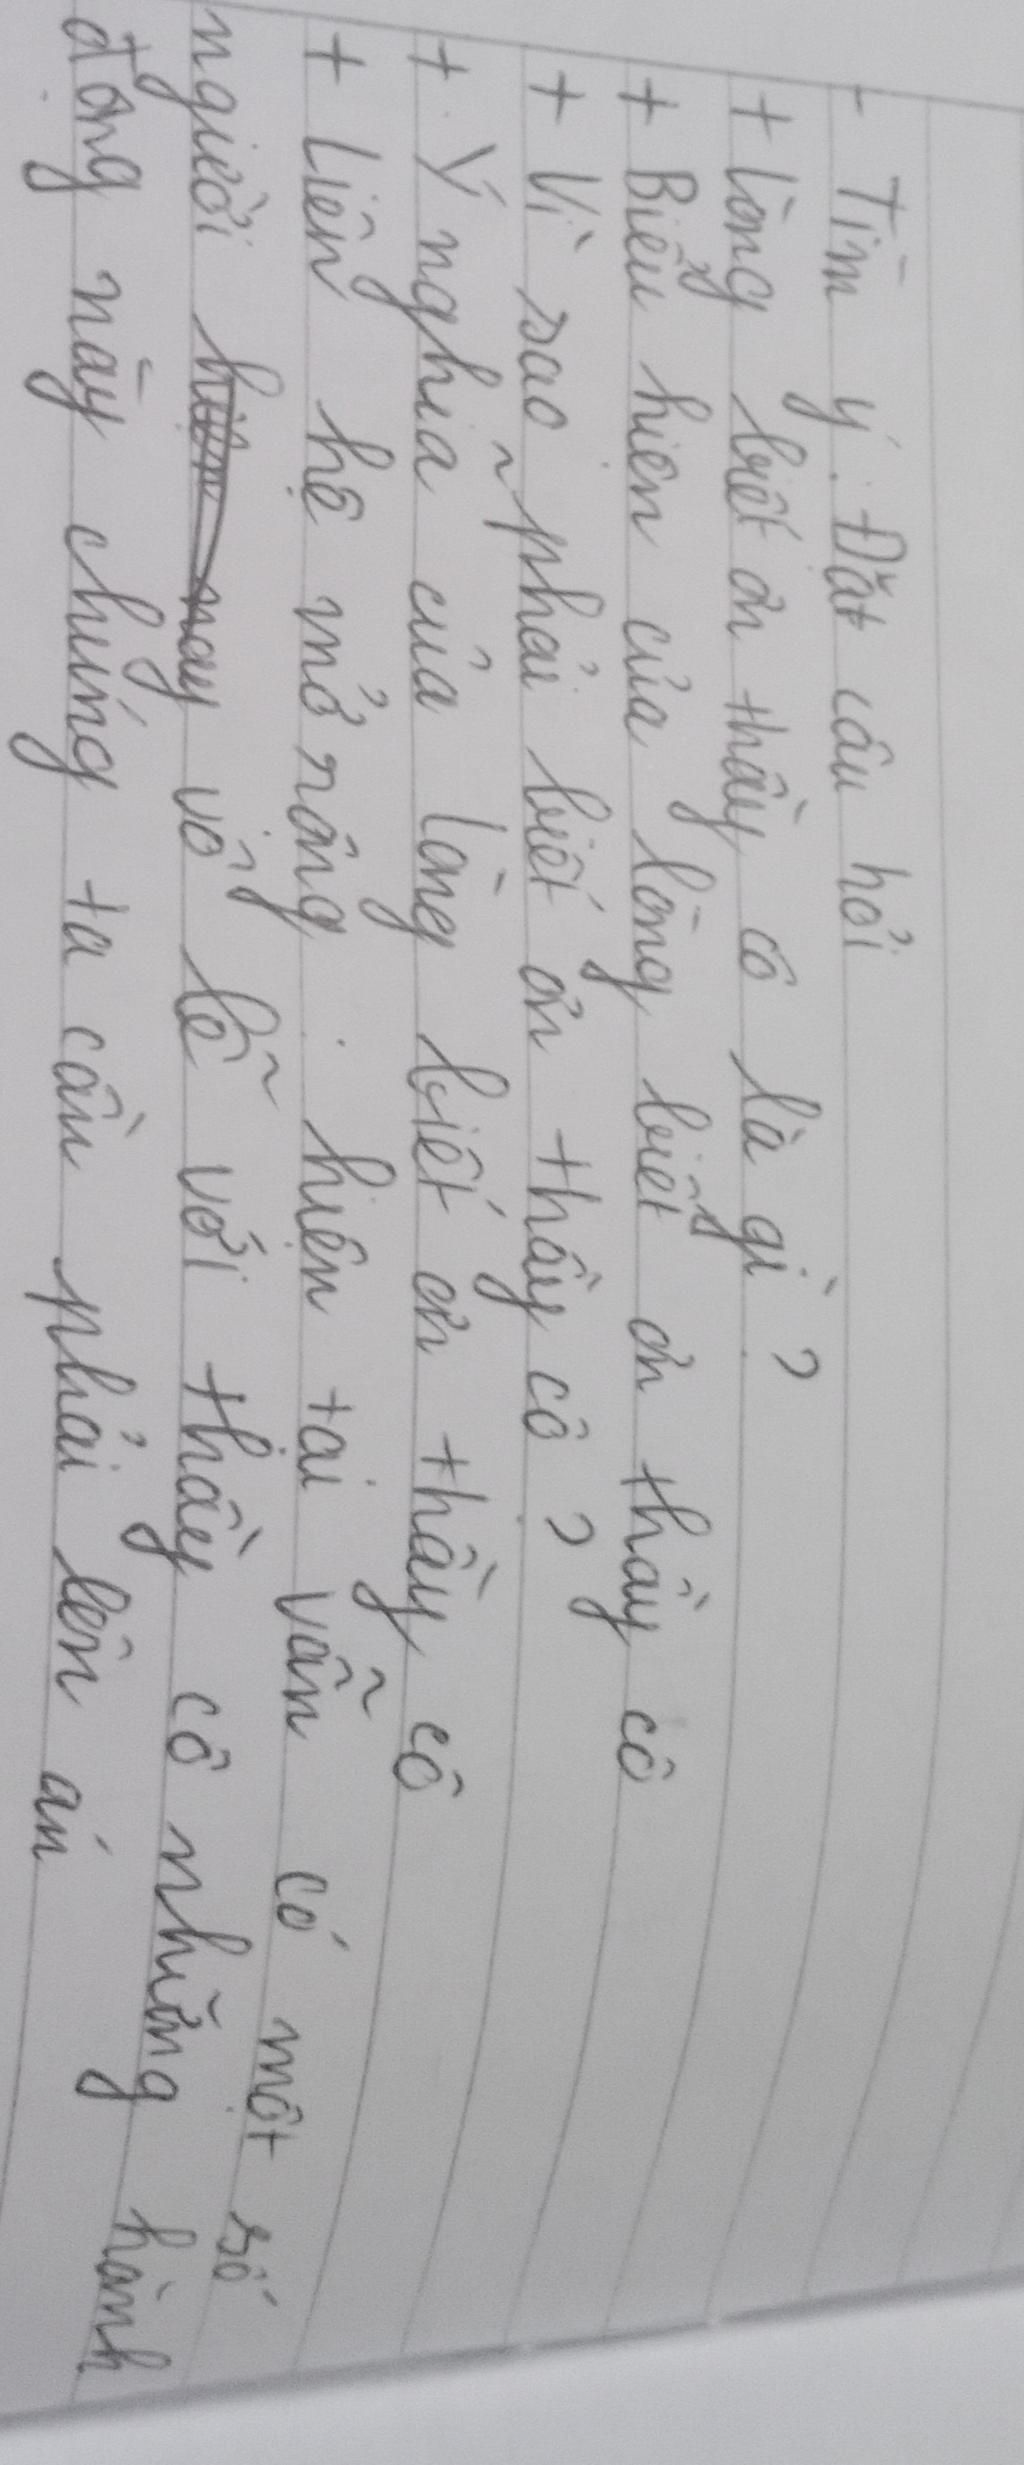 - Tìm ý. Đặt câu hỏi
+ Lòng biết ơn thầy cô là gì?
+ Biểu hiện của lòng biết ơn thầy cô
+ Vì sao phải biết ơn thầy cô?
+ Ý nghĩa của lòng biết ơn thầy cô
+ Liên hệ mở rộng: hiện tại vẫn có một số
người hay vô lễ với thầy cô những hành
động này chúng ta cần phải lên án